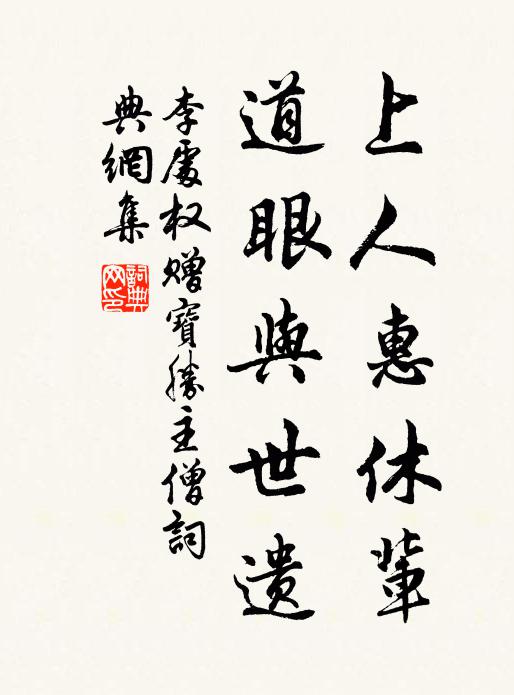 上人惠休輩
道眼與世遺
李處权赠寶勝主僧詞
典網集
詞典网印